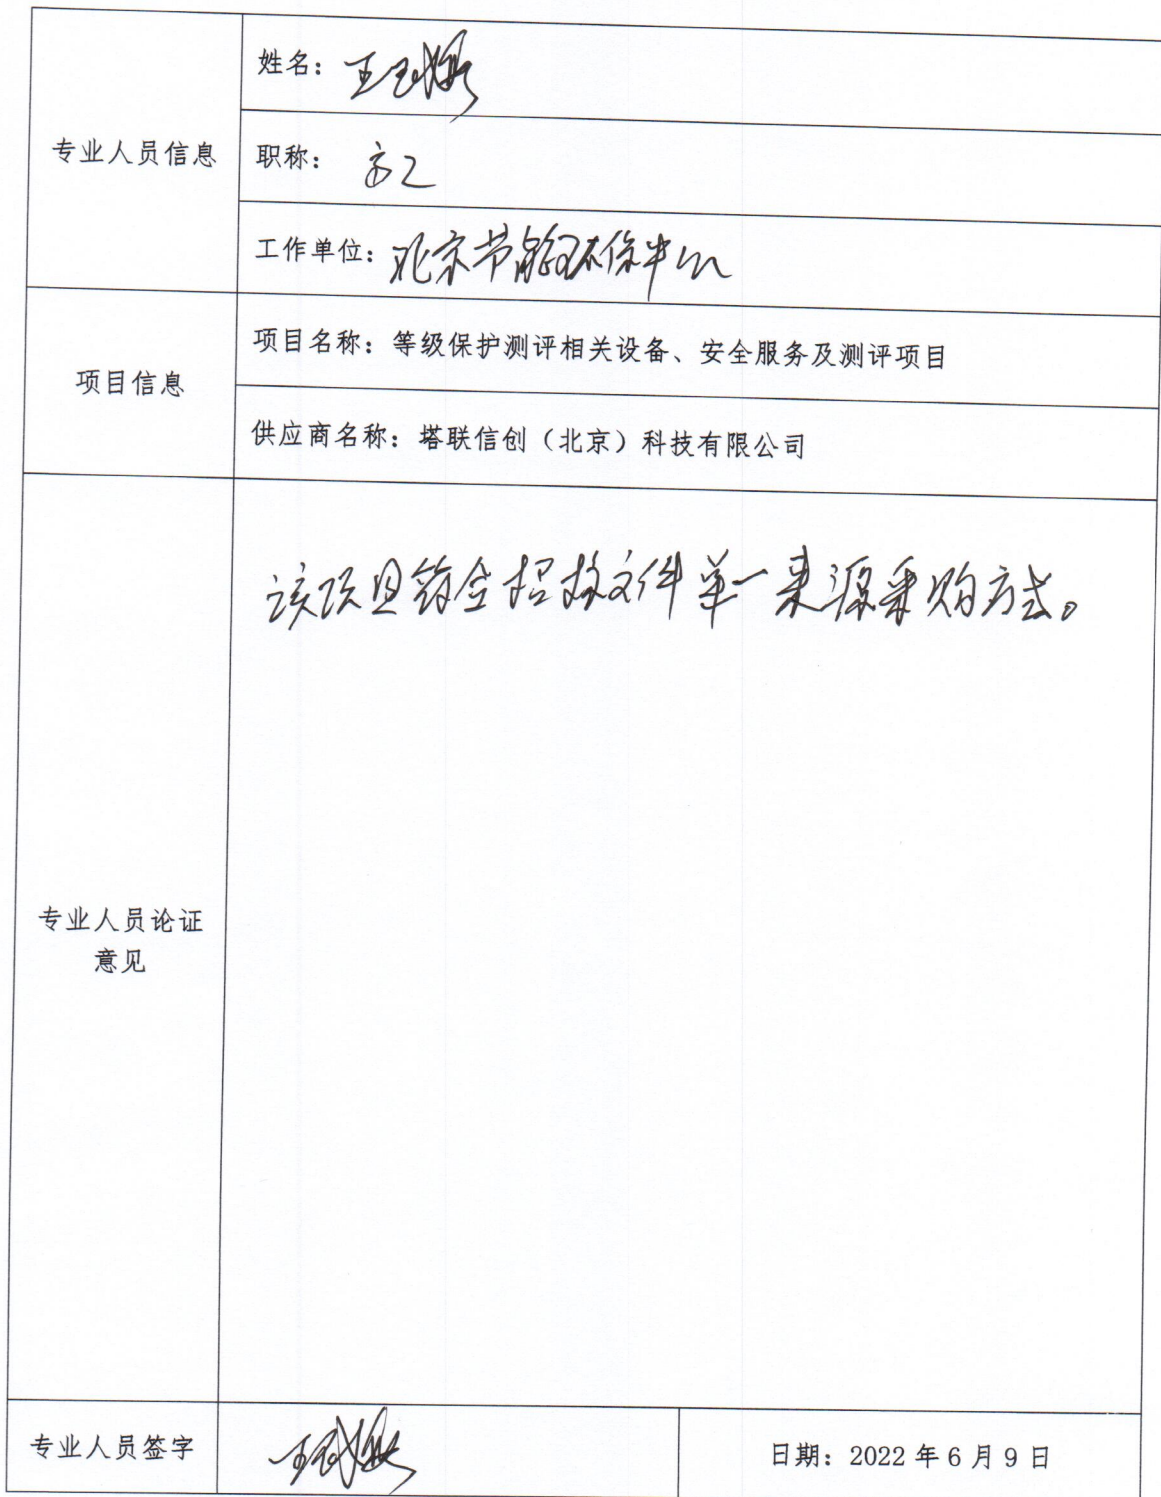 专业人员信息
姓名：王
职称：高工
工作单位：北京节能环保中心
项目信息
项目名称：等级保护测评相关设备、安全服务及测评项目
供应商名称：塔联信创（北京）科技有限公司
专业人员论证
意见
该项目符合招标文件单一来源采购方式。
专业人员签字
日期：2022年6月9日